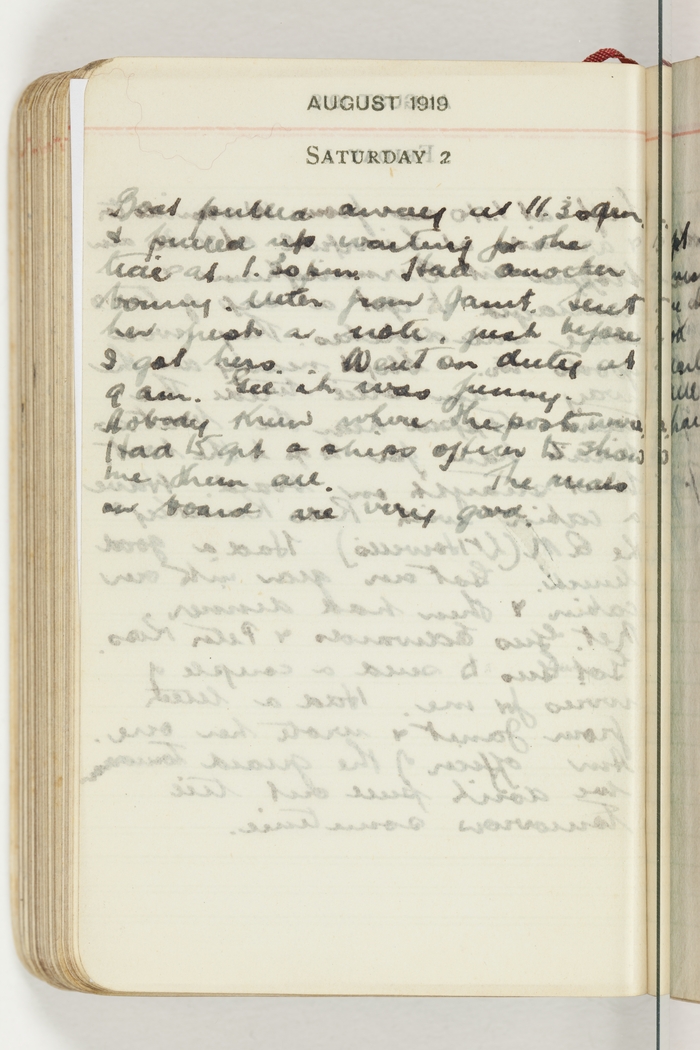 AUGUST 1919
SATURDAY 2
Boat pulled away at 11.30am
& pulled up waiting for the
tide at 1.30pm. Had another
bonny letter from Janet. Sent
her just a note, just before
I got hers. Went on duty at
9 am. Gee it was funny.
Nobody knew where the posts were,
Had to get a ships officer to show
me them all. The meals
on board are very good.